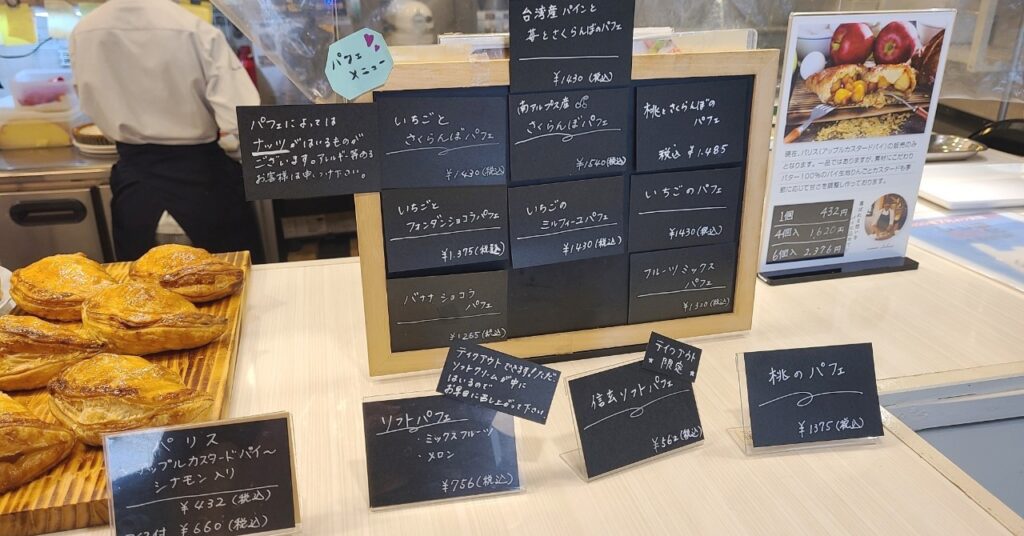 パフェ
メニュー
台湾産パインと
苺とさくらんぼのパフェ
¥1430(税込)
パフェによっては
ナッツがはいるものが
ございます。アレルギー等のある
お客様は申し下さい。
いちごと
さくらんぼパフェ
¥1430(税込)
南アルプス産
さくらんぼパフェ
¥1540(税込)
桃とさくらんぼの
パフェ
税込 ¥1.485
いちごと
フォンダンショコラパフェ
¥1.375(税込)
いちごの
ミルフィーユパフェ
¥1430(税込)
いちごのパフェ
¥1430(税込)
バナナショコラ
パフェ
¥1265(税込)
フルーツミックス
パフェ
¥1320(税込)
現在、パリス(アップルカスタードパイ)の販売のみ
となります。一品ではありますが、素材にこだわり
バター100%のパイ生地りんごとカスタードも季
節に応じて甘さを調整し作っております。
1個 432円
4個入 1620円
6個入 2,376円
テイクアウトできます!ただ
ソフトクリームが中に
はいるので
お早目に召し上がって下さい。
テイクアウト
限定
パリス
アップルカスタードパイ〜
シナモン入り
¥432(税込)
¥660(税込)
ソフトパフェ
・ミックスフルーツ
・メロン
¥756(税込)
信玄ソフトパフェ
¥562(税込)
桃のパフェ
¥1375(税込)